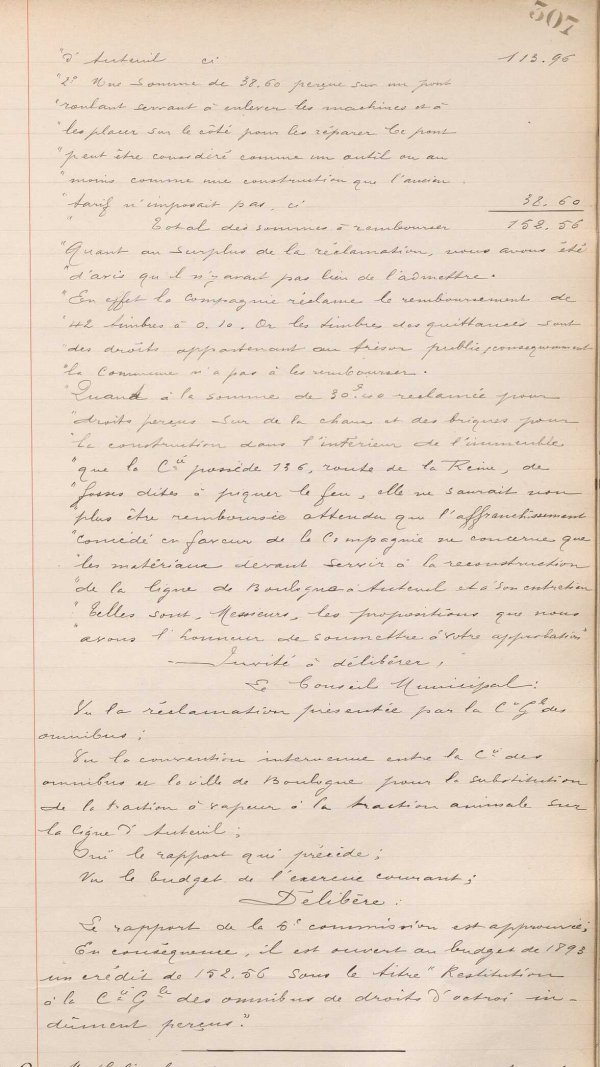 307
"d'Auteuil ci 113.96
"2° Une somme de 38.60 perçue sur un pont
"roulant servant à enlever les machines et à
"les placer sur le côté pour les réparer. Ce pont
"peut être considéré comme un outil ou au
"moins comme une construction que l'ancien
"tarif n'imposait pas, ci 38.60
" Total des sommes à rembourser 152.56
"Quant au surplus de la réclamation, nous avons été
"d'avis qu'il n'y avait pas lieu de l'admettre.
"En effet la Compagnie réclame le remboursement de
"42 timbres à 0.10. Or les timbres des quittances sont
"des droits appartenant au trésor public, conséquemment
"la Commune n'a pas à les rembourser.
"Quand à la somme de 30f.40 réclamée pour
"droits perçus sur de la chaux et des briques pour
"la construction dans l'intérieur de l'immeuble
"que la Cie possède 136, route de la Reine, de
"fosses dites à piquer le feu, elle ne saurait non
"plus être remboursée attendu que l'affranchissement
"concédé en faveur de la Compagnie ne concerne que
"les matériaux devant servir à la reconstruction
"de la ligne de Boulogne à Auteuil et à son entretien
"Telles sont, Messieurs, les propositions que nous
"avons l'honneur de soumettre à votre approbation"
Invité à délibérer,
Le Conseil Municipal:
Vu la réclamation présentée par la Cie Gle des
omnibus;
Vu la convention intervenue entre la Cie des
omnibus et la ville de Boulogne pour la substitution
de la traction à vapeur à la traction animale sur
la ligne d'Auteuil;
Ouï le rapport qui précède;
Vu le budget de l'exercice courant;
Délibère:
Le rapport de la 6e commission est approuvé;
En conséquence, il est ouvert au budget de 1893
un crédit de 152.56 sous le titre "Restitution
à la Cie Gle des omnibus de droits d'octroi in-
dûment perçus."